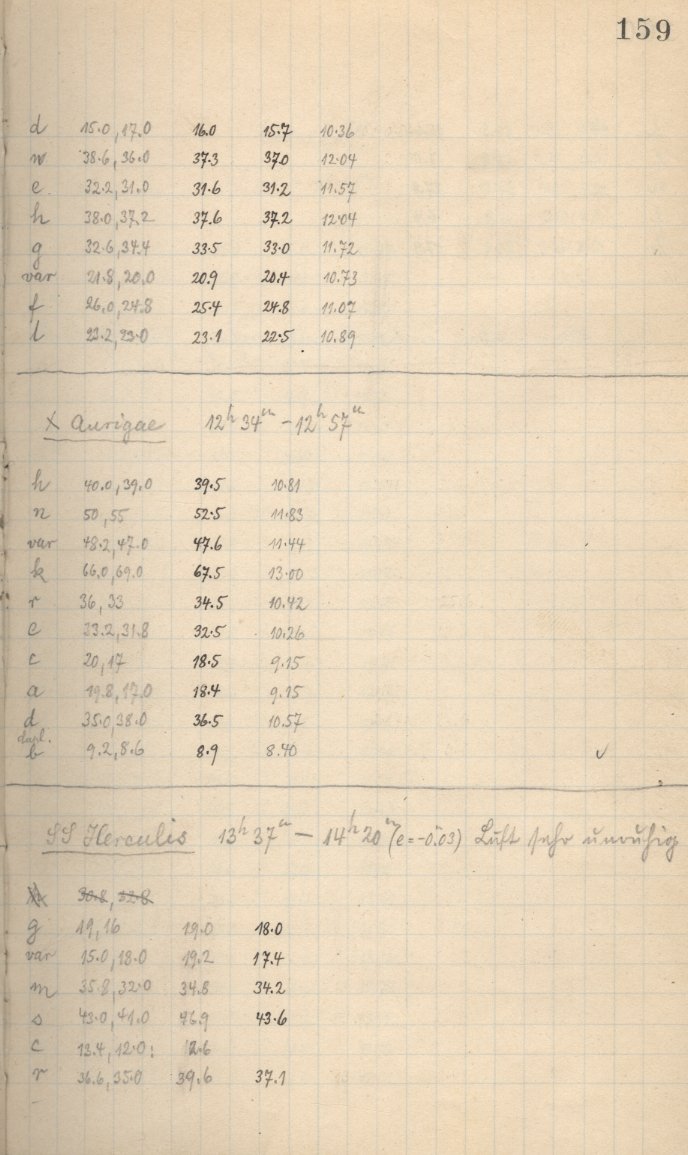 159
d 15.0, 17.0 16.0 15.7 10.36
w 38.6, 36.0 37.3 37.0 12.04
e 32.2, 31.0 31.6 31.2 11.57
h 38.0, 37.2 37.6 37.2 12.04
g 32.6, 34.4 33.5 33.0 11.72
var 21.8, 20.0 20.9 20.4 10.73
f 26.0, 24.8 25.4 24.8 11.07
l 23.2, 23.0 23.1 22.5 10.89
X Aurigae 12h 34m - 12h 57m
h 40.0, 39.0 39.5 10.81
n 50, 55 52.5 11.83
var 48.2, 47.0 47.6 11.44
k 66.0, 69.0 67.5 13.00
r 36, 33 34.5 10.42
e 33.2, 31.8 32.5 10.26
c 20, 17 18.5 9.15
a 19.8, 17.0 18.4 9.15
d 35.0, 38.0 36.5 10.57
dupl.
b 9.2, 8.6 8.9 8.40 ✓
SS Herculis 13h 37m — 14h 20m (e = -0.03) Luft sehr unruhig
30.8, 32.8
g 19, 16 19.0 18.0
var 15.0, 18.0 19.2 17.4
m 35.8, 32.0 34.8 34.2
s 43.0, 41.0 46.9 43.6
c 13.4, 12.0: 12.6
r 36.6, 35.0 39.6 37.1